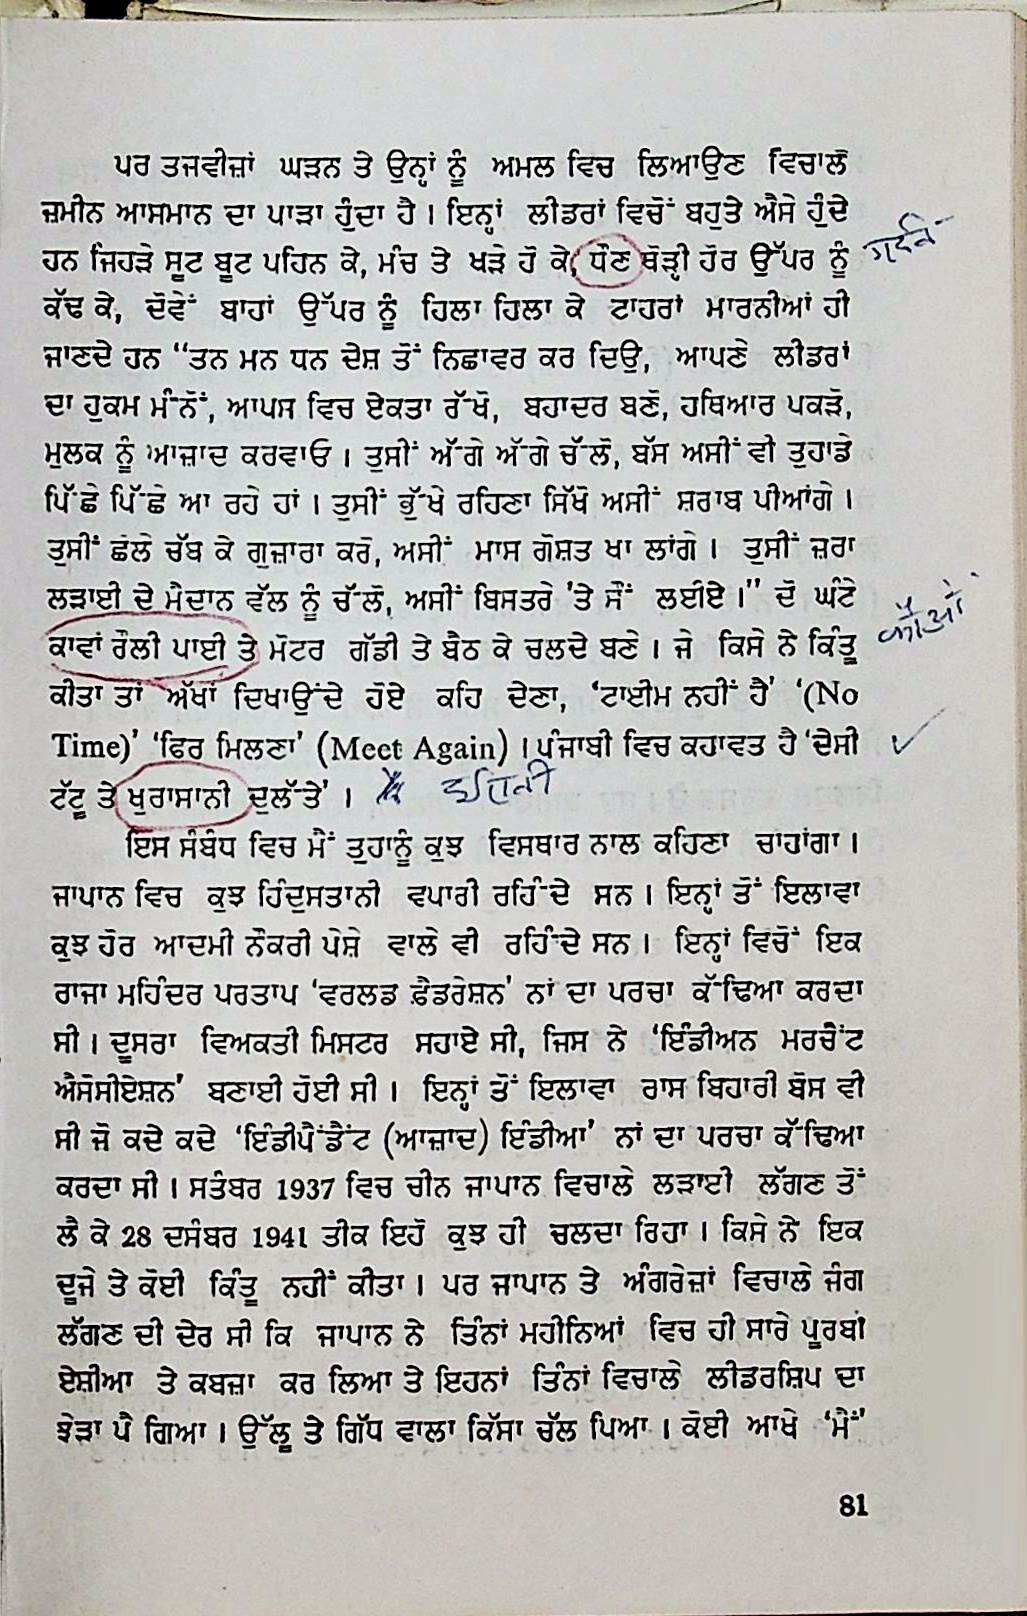 ਪਰ ਤਜਵੀਜ਼ਾਂ ਘੜਨ ਤੇ ਉਨ੍ਹਾਂ ਨੂੰ ਅਮਲ ਵਿਚ ਲਿਆਉਣ ਵਿਚਾਲੇ
ਜ਼ਮੀਨ ਆਸਮਾਨ ਦਾ ਪਾੜਾ ਹੁੰਦਾ ਹੈ । ਇਨ੍ਹਾਂ ਲੀਡਰਾਂ ਵਿਚੋਂ ਬਹੁਤੇ ਐਸੇ ਹੁੰਦੇ
ਹਨ ਜਿਹੜੇ ਸੂਟ ਬੂਟ ਪਹਿਨ ਕੇ, ਮੰਚ ਤੇ ਖੜੇ ਹੋ ਕੇ, ਧੌਣ ਥੋੜ੍ਹੀ ਹੋਰ ਉੱਪਰ ਨੂੰ गर्दन
ਕੱਢ ਕੇ, ਦੋਵੇਂ ਬਾਹਾਂ ਉੱਪਰ ਨੂੰ ਹਿਲਾ ਹਿਲਾ ਕੇ ਟਾਹਰਾਂ ਮਾਰਨੀਆਂ ਹੀ
ਜਾਣਦੇ ਹਨ “ਤਨ ਮਨ ਧਨ ਦੇਸ਼ ਤੋਂ ਨਿਛਾਵਰ ਕਰ ਦਿਉ, ਆਪਣੇ ਲੀਡਰਾਂ
ਦਾ ਹੁਕਮ ਮੰਨੋਂ, ਆਪਸ ਵਿਚ ਏਕਤਾ ਰੱਖੋ, ਬਹਾਦਰ ਬਣੋ, ਹਥਿਆਰ ਪਕੜੋ,
ਮੁਲਕ ਨੂੰ ਆਜ਼ਾਦ ਕਰਵਾਓ । ਤੁਸੀਂ ਅੱਗੇ ਅੱਗੇ ਚੱਲੋ, ਬੱਸ ਅਸੀਂ ਵੀ ਤੁਹਾਡੇ
ਪਿੱਛੇ ਪਿੱਛੇ ਆ ਰਹੇ ਹਾਂ । ਤੁਸੀਂ ਭੁੱਖੇ ਰਹਿਣਾ ਸਿੱਖੋ ਅਸੀਂ ਸ਼ਰਾਬ ਪੀਆਂਗੇ ।
ਤੁਸੀਂ ਛੋਲੇ ਚੱਬ ਕੇ ਗੁਜ਼ਾਰਾ ਕਰੋ, ਅਸੀਂ ਮਾਸ ਗੋਸ਼ਤ ਖਾ ਲਾਂਗੇ । ਤੁਸੀਂ ਜ਼ਰਾ
ਲੜਾਈ ਦੇ ਮੈਦਾਨ ਵੱਲ ਨੂੰ ਚੱਲੋ, ਅਸੀਂ ਬਿਸਤਰੇ 'ਤੇ ਸੌਂ ਲਈਏ ।” ਦੋ ਘੰਟੇ
ਕਾਵਾਂ ਰੌਲੀ ਪਾਈ ਤੇ ਮੋਟਰ ਗੱਡੀ ਤੇ ਬੈਠ ਕੇ ਚਲਦੇ ਬਣੇ । ਜੇ ਕਿਸੇ ਨੇ ਕਿੰਤੂ कौओं
ਕੀਤਾ ਤਾਂ ਅੱਖਾਂ ਦਿਖਾਉਂਦੇ ਹੋਏ ਕਹਿ ਦੇਣਾ, ‘ਟਾਈਮ ਨਹੀਂ ਹੈ’ ‘(No
Time)’ ‘ਫਿਰ ਮਿਲਣਾ’ (Meet Again) । ਪੰਜਾਬੀ ਵਿਚ ਕਹਾਵਤ ਹੈ ‘ਦੇਸੀ
ਟੱਟੂ ਤੇ ਖੁਰਾਸਾਨੀ ਦੁਲੱਤੇ’ ।
ਇਸ ਸੰਬੰਧ ਵਿਚ ਮੈਂ ਤੁਹਾਨੂੰ ਕੁਝ ਵਿਸਥਾਰ ਨਾਲ ਕਹਿਣਾ ਚਾਹਾਂਗਾ ।
ਜਾਪਾਨ ਵਿਚ ਕੁਝ ਹਿੰਦੁਸਤਾਨੀ ਵਪਾਰੀ ਰਹਿੰਦੇ ਸਨ । ਇਨ੍ਹਾਂ ਤੋਂ ਇਲਾਵਾ
ਕੁਝ ਹੋਰ ਆਦਮੀ ਨੌਕਰੀ ਪੇਸ਼ੇ ਵਾਲੇ ਵੀ ਰਹਿੰਦੇ ਸਨ । ਇਨ੍ਹਾਂ ਵਿਚੋਂ ਇਕ
ਰਾਜਾ ਮਹਿੰਦਰ ਪਰਤਾਪ ‘ਵਰਲਡ ਫ਼ੈਡਰੇਸ਼ਨ’ ਨਾਂ ਦਾ ਪਰਚਾ ਕੱਢਿਆ ਕਰਦਾ
ਸੀ । ਦੂਸਰਾ ਵਿਅਕਤੀ ਮਿਸਟਰ ਸਹਾਏ ਸੀ, ਜਿਸ ਨੇ ‘ਇੰਡੀਅਨ ਮਰਚੈਂਟ
ਐਸੋਸੀਏਸ਼ਨ’ ਬਣਾਈ ਹੋਈ ਸੀ । ਇਨ੍ਹਾਂ ਤੋਂ ਇਲਾਵਾ ਰਾਸ ਬਿਹਾਰੀ ਬੋਸ ਵੀ
ਸੀ ਜੋ ਕਦੇ ਕਦੇ ‘ਇੰਡੀਪੈਂਡੈਂਟ (ਆਜ਼ਾਦ) ਇੰਡੀਆ’ ਨਾਂ ਦਾ ਪਰਚਾ ਕੱਢਿਆ
ਕਰਦਾ ਸੀ । ਸਤੰਬਰ 1937 ਵਿਚ ਚੀਨ ਜਾਪਾਨ ਵਿਚਾਲੇ ਲੜਾਈ ਲੱਗਣ ਤੋਂ
ਲੈ ਕੇ 28 ਦਸੰਬਰ 1941 ਤੀਕ ਇਹੋ ਕੁਝ ਹੀ ਚਲਦਾ ਰਿਹਾ । ਕਿਸੇ ਨੇ ਇਕ
ਦੂਜੇ ਤੇ ਕੋਈ ਕਿੰਤੂ ਨਹੀਂ ਕੀਤਾ । ਪਰ ਜਾਪਾਨ ਤੇ ਅੰਗਰੇਜ਼ਾਂ ਵਿਚਾਲੇ ਜੰਗ
ਲੱਗਣ ਦੀ ਦੇਰ ਸੀ ਕਿ ਜਾਪਾਨ ਨੇ ਤਿੰਨਾਂ ਮਹੀਨਿਆਂ ਵਿਚ ਹੀ ਸਾਰੇ ਪੂਰਬੀ
ਏਸ਼ੀਆ ਤੇ ਕਬਜ਼ਾ ਕਰ ਲਿਆ ਤੇ ਇਹਨਾਂ ਤਿੰਨਾਂ ਵਿਚਾਲੇ ਲੀਡਰਸ਼ਿਪ ਦਾ
ਝੇੜਾ ਪੈ ਗਿਆ । ਉੱਲੂ ਤੇ ਗਿੱਧ ਵਾਲਾ ਕਿੱਸਾ ਚੱਲ ਪਿਆ । ਕੋਈ ਆਖੇ ‘ਮੈਂ’
81